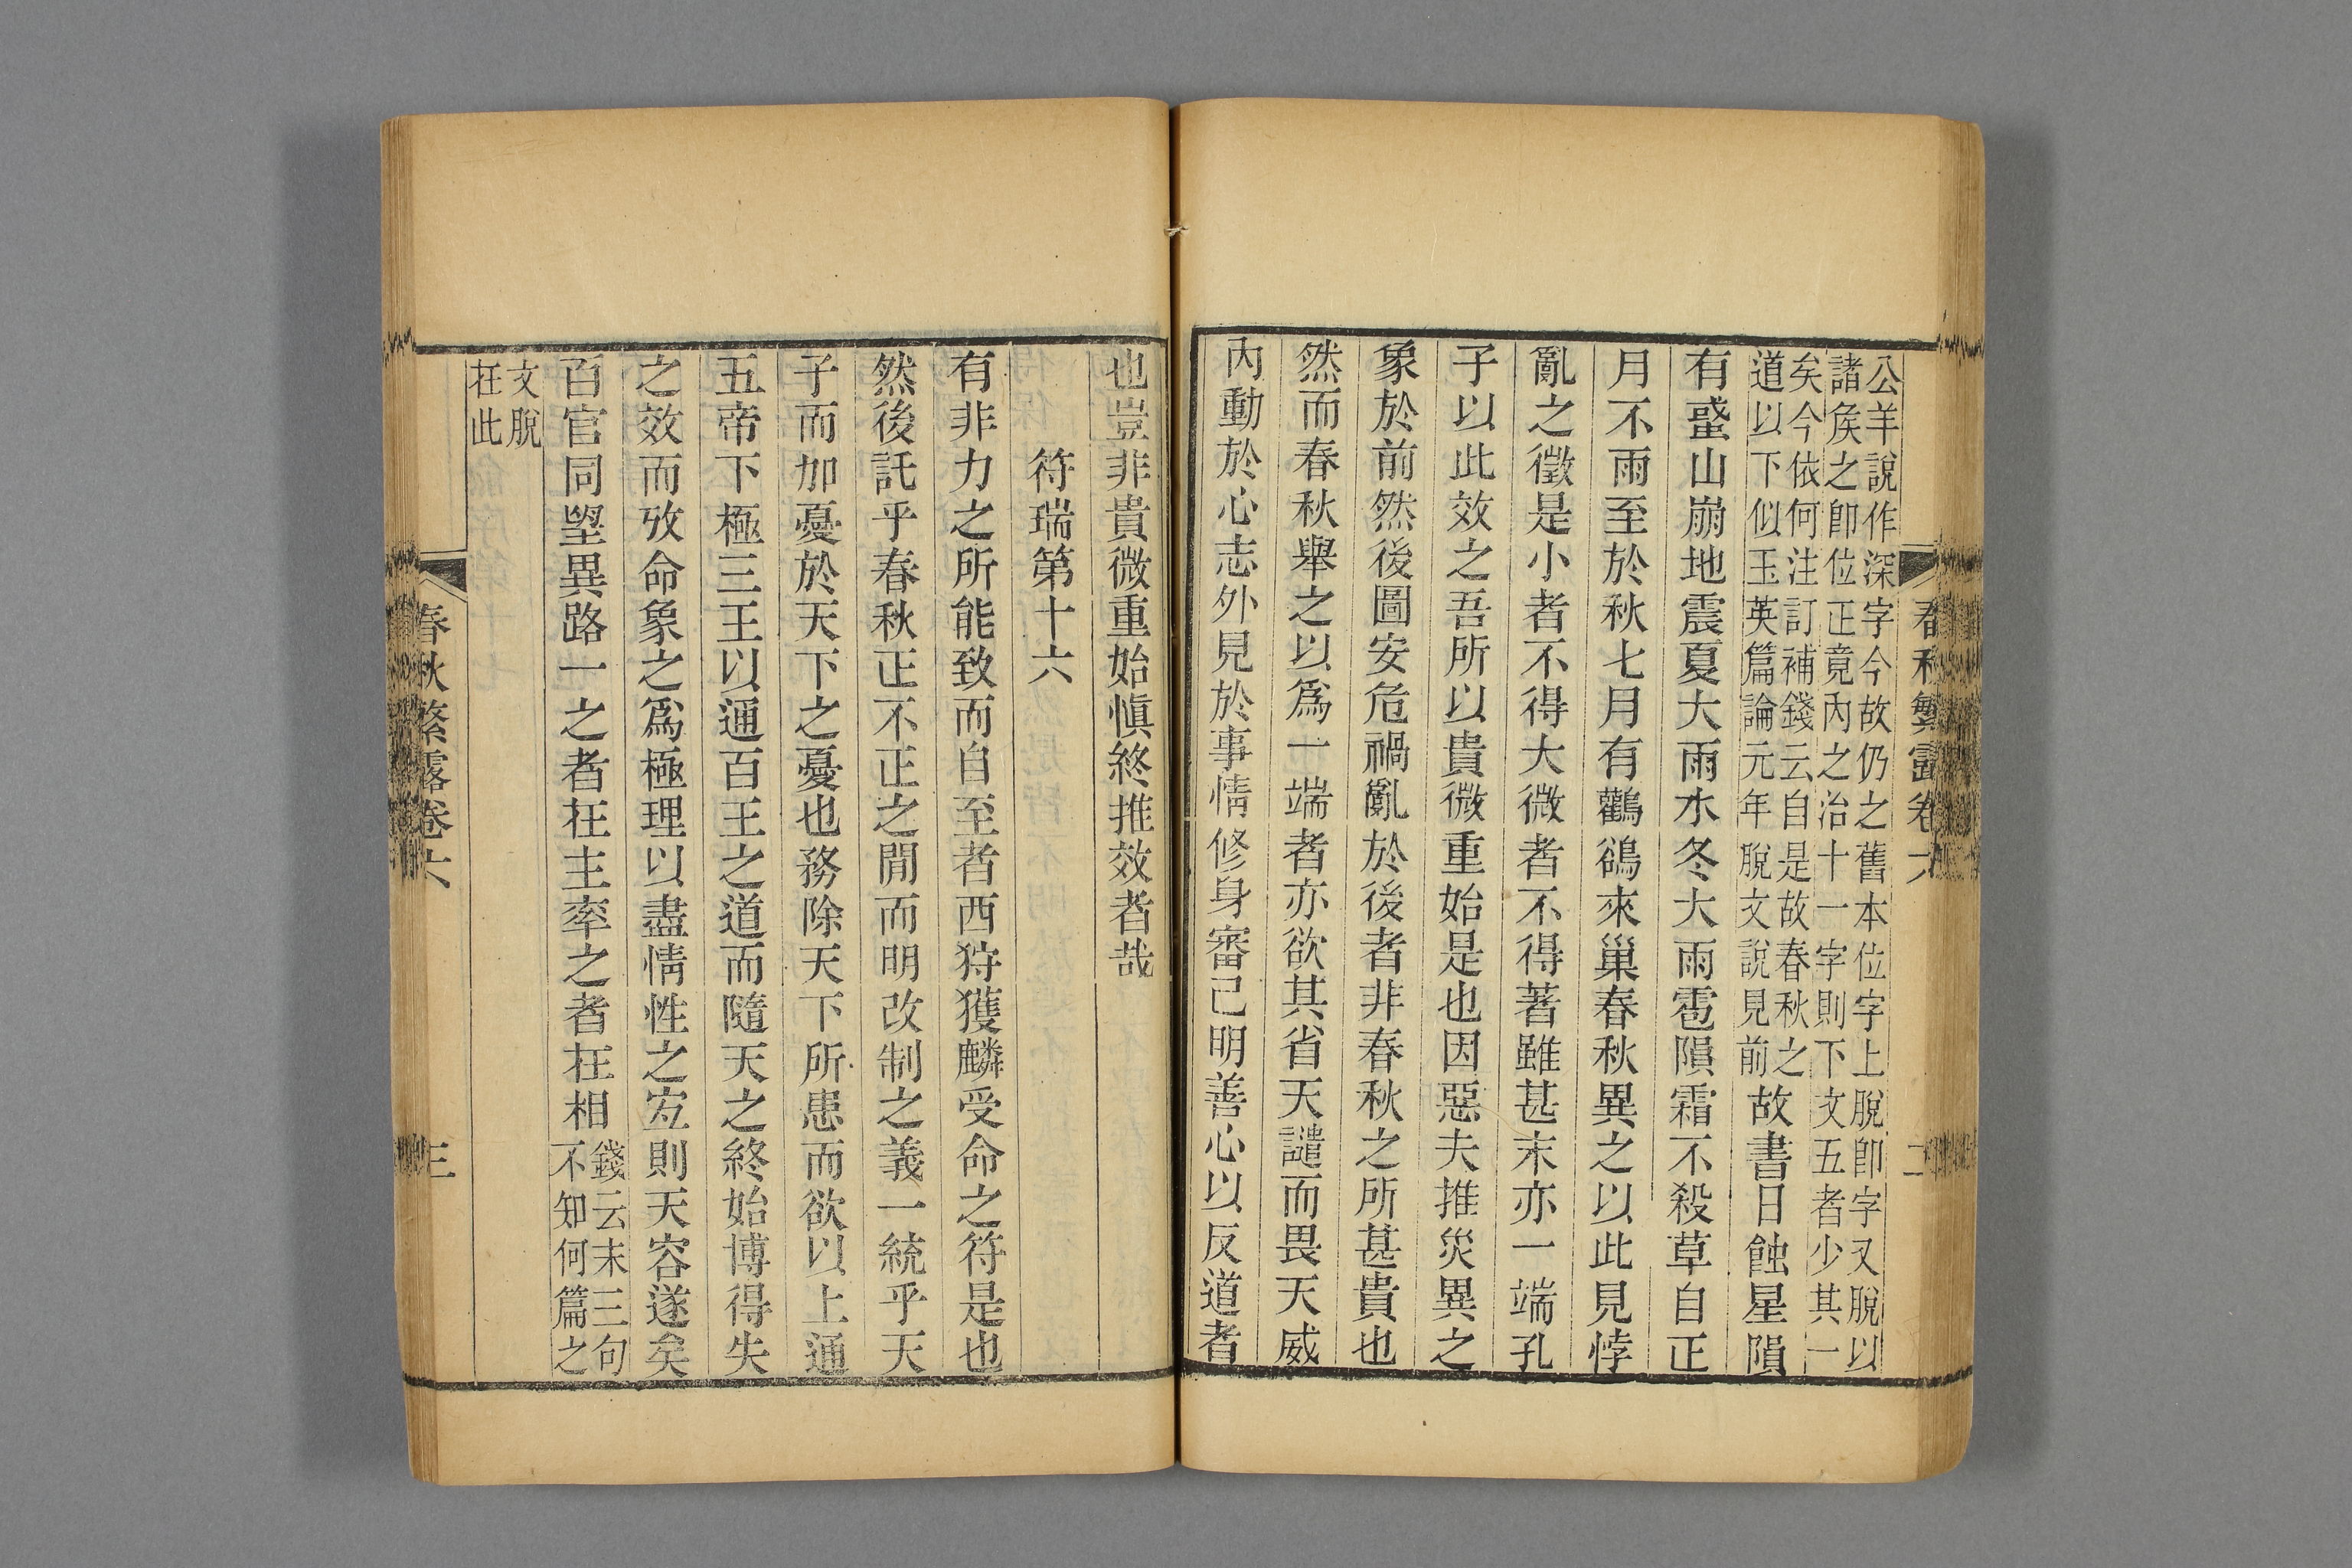 春秋繁露卷六 二
公羊說作深字今故仍之舊本位字上脫卽字又脫以
諸矦之卽位正竟內之治十一字則下文五者少其一
矣今依何注訂補錢云自是故春秋之
道以下似玉英篇論元年脫文說見前
故書日蝕星隕
有蜮山崩地震夏大雨水冬大雨雹隕霜不殺草自正
月不雨至於秋七月有鸛鵒來巢春秋異之以此見悖
亂之徵是小者不得大微者不得著雖甚末亦一端孔
子以此效之吾所以貴微重始是也因惡夫推災異之
象於前然後圖安危禍亂於後者非春秋之所甚貴也
然而春秋舉之以爲一端者亦欲其省天譴而畏天威
內動於心志外見於事情修身審己明善心以反道者
也豈非貴微重始愼終推效者哉
符瑞第十六
有非力之所能致而自至者西狩獲麟受命之符是也
然後託乎春秋正不正之閒而明改制之義一統乎天
子而加憂於天下之憂也務除天下所患而欲以上通
五帝下極三王以通百王之道而隨天之終始博得失
之效而攷命象之爲極理以盡情性之宐則天容遂矣
百官同朢異路一之者在主率之者在相
錢云末三句
不知何篇之
文脫
在此
春秋繁露卷六 三